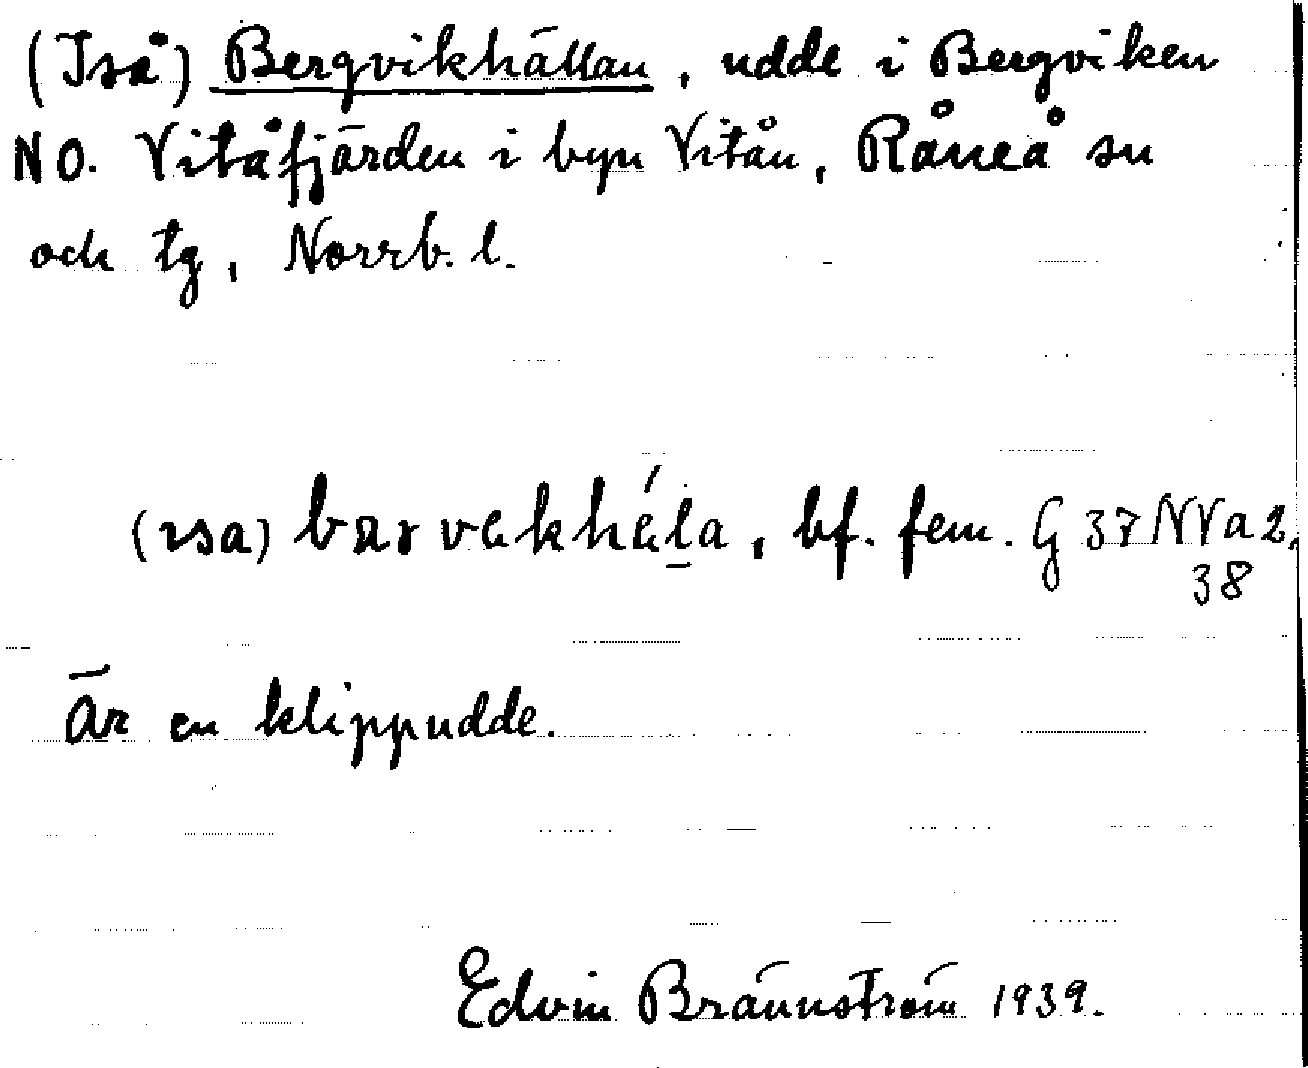 (Iså) Bergvikhällan, udde i Bergviken
NO. Vitåfjärden i byn Vitån, Råneå sn
och tg, Norrb. l.
bf. fem. G 37 NVa 2,
38
Är en klippudde.
Edvin Brännström 1939.